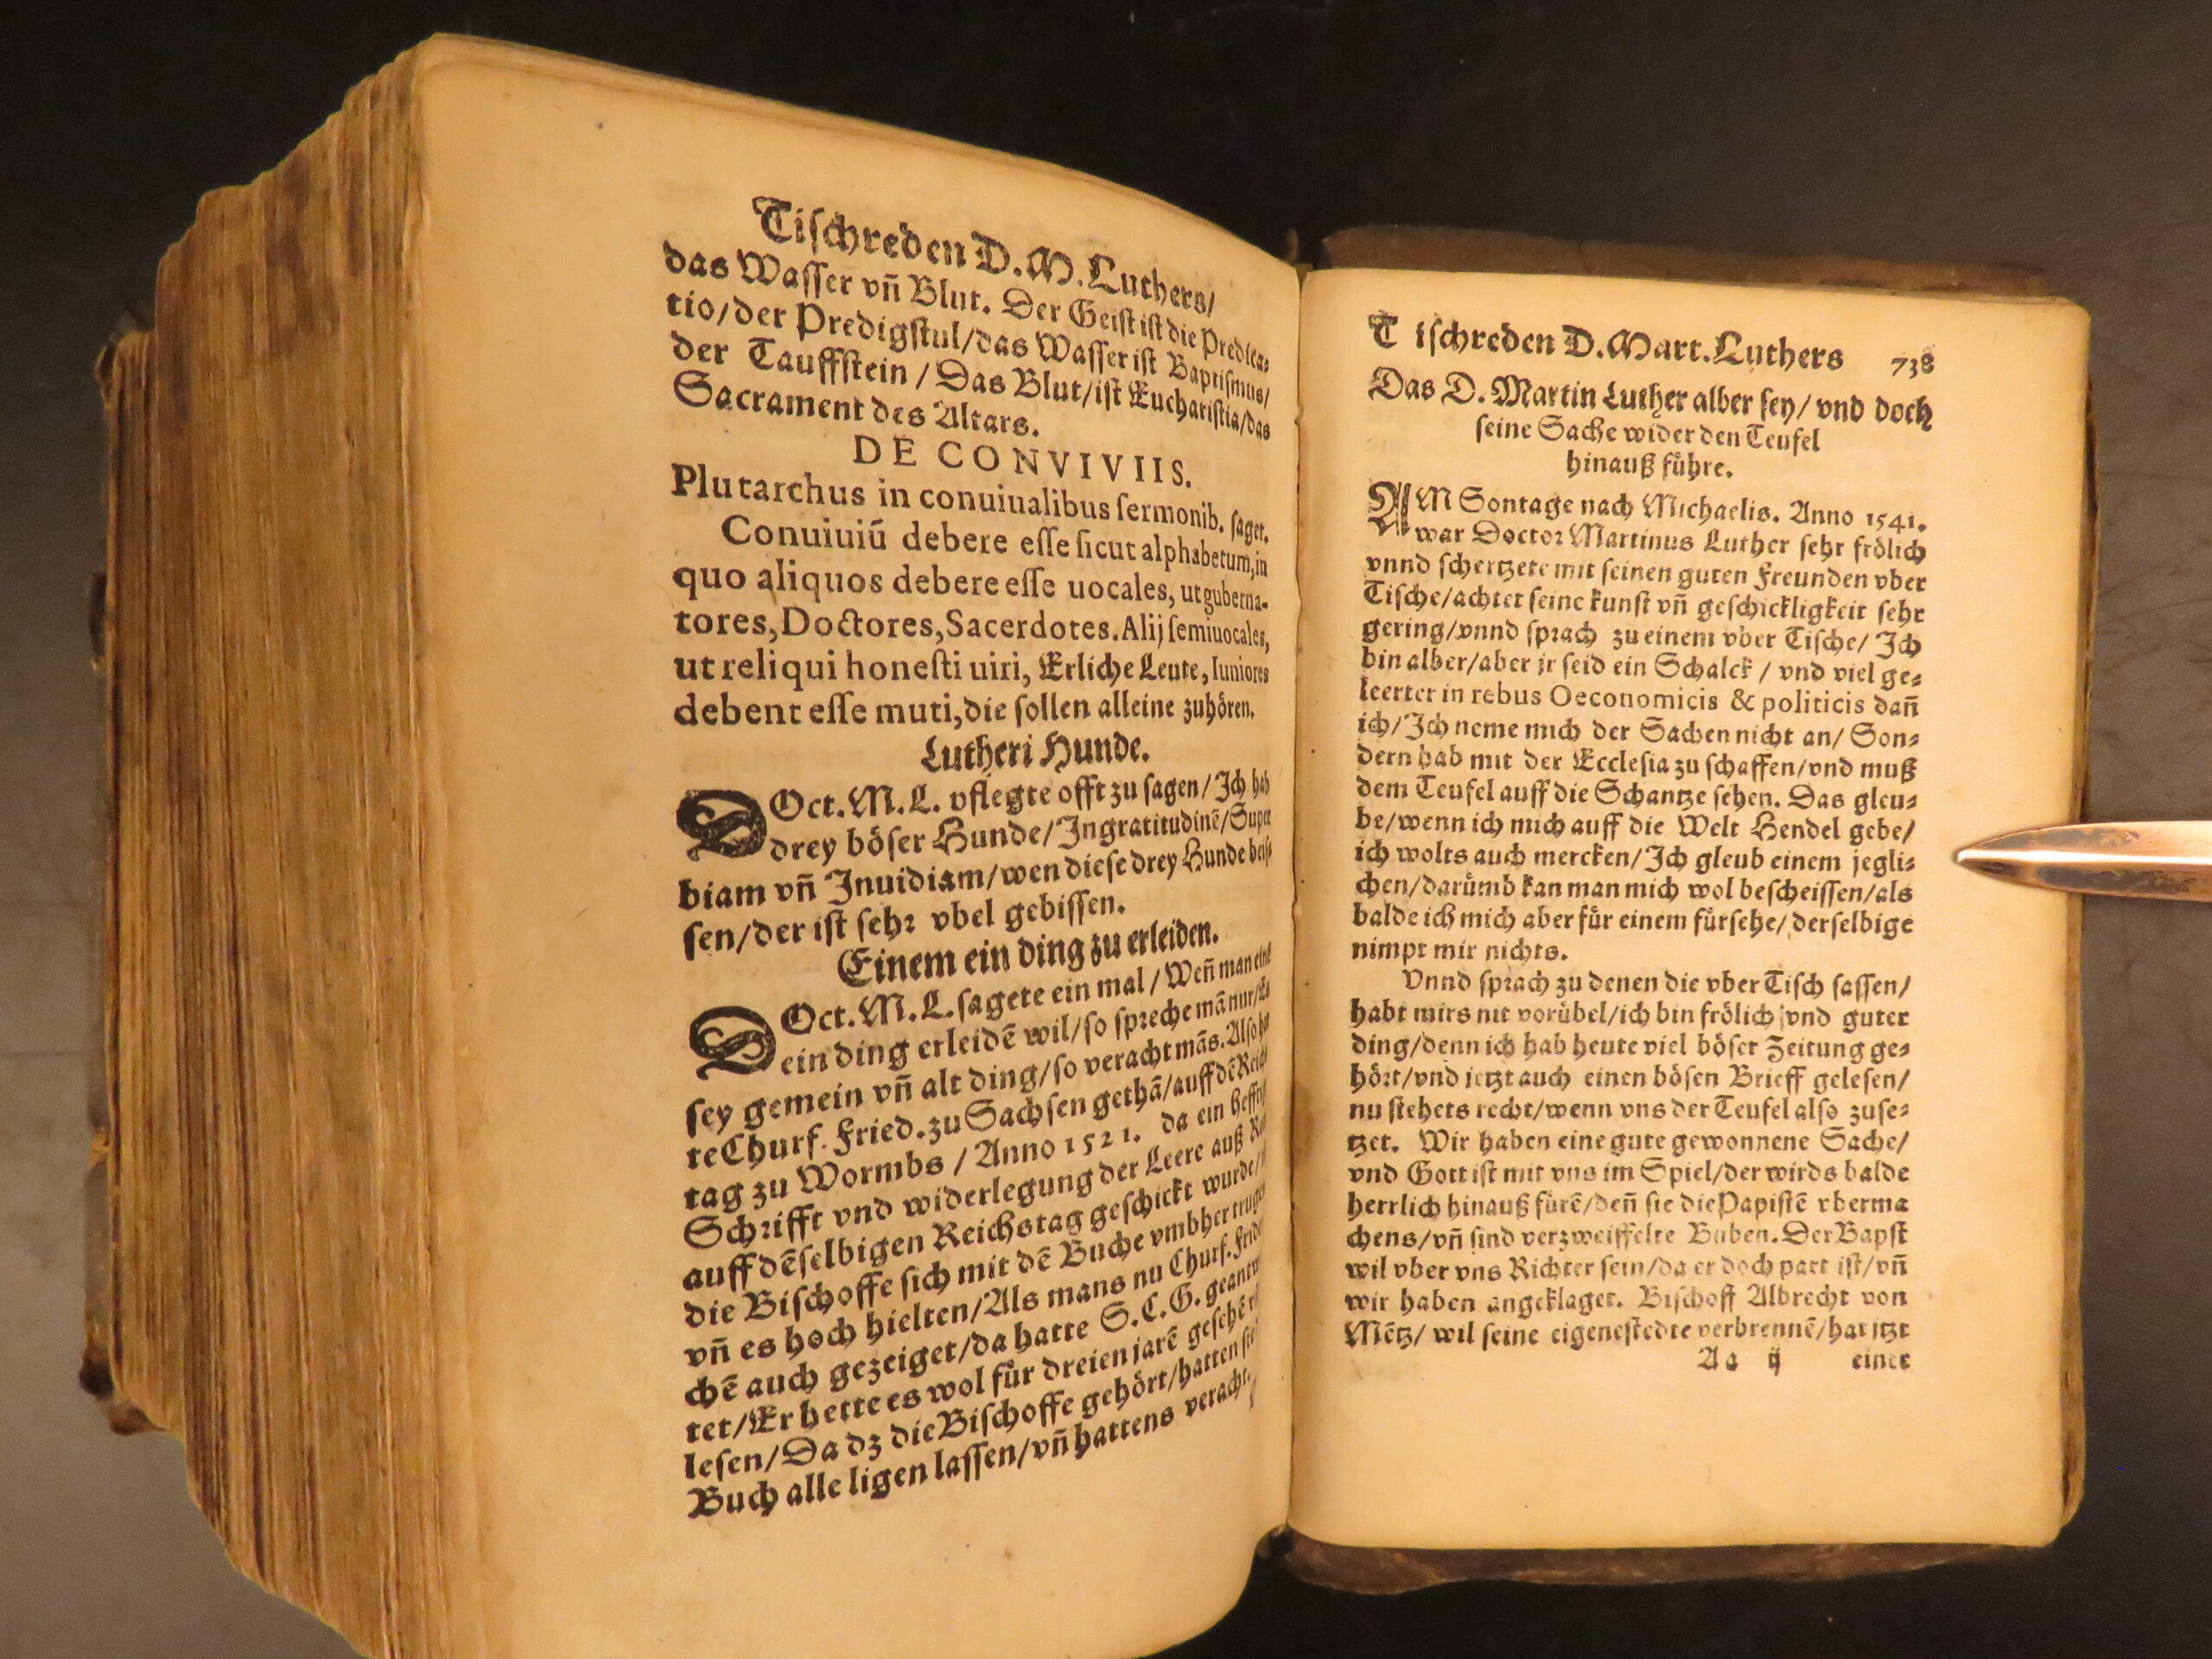 Tiſchreden D. M. Luthers/
das Waſſer vñ Blut. Der Geiſt iſt die Predica⸗
tio/der Predigſtul/das Waſſer iſt Baptiſmus/
der Tauffſtein / Das Blut/iſt Euchariſtia/das
Sacrament des Altars.
DE CONVIVIIS.
Plutarchus in conuiualibus ſermonib. ſaget.
Conuiuiū debere eſſe ſicut alphabetum,in
quo aliquos debere eſſe uocales, ut guberna-
tores,Doctores,Sacerdotes.Alij ſemiuocales,
ut reliqui honeſti uiri, Erliche Leute, Iuniores
debent eſſe muti,die ſollen alleine zuhören.
Lutheri Hunde.
DOct. M. L. pflegte offt zu ſagen/Ich hab
drey böſer Hunde/Ingratitudinē/Super
biam vñ Inuidiam/wen dieſe drey Hunde beiſ⸗
ſen/der iſt ſehr vbel gebiſſen.
Einem ein ding zu erleiden.
DOct. M. L. ſagete ein mal / Weñ man eine
ein ding erleidē wil/ſo ſpreche mā nur/Es
ſey gemein vñ alt ding/ſo veracht mās. Alſo het
te Churf. Fried. zu Sachſen gethā/auff dē Reichs
tag zu Wormbs / Anno 1521. da ein
Schrifft vnd widerlegung der Leere auß
auff dēſelbigen Reichstag geſchickt wurde/
die Biſchoffe ſich mit dē Buche vmbher trugen
vñ es hoch hielten/Als mans nu Churf. Frid
chē auch gezeiget/da hatte S. C. G. geantwor
tet/Er hette es wol für dreien jarē
leſen/Da dz die Biſchoffe gehört/hatten ſie
Buch alle ligen laſſen/vñ hattens veracht.
Tiſchreden D. Mart. Luthers 738
Das D. Martin Luther alber ſey/ vnd doch
ſeine Sache wider den Teufel
hinauß führe.
AM Sontage nach Michaelis. Anno 1541.
war Doctor Martinus Luther ſehr frölich
vnnd ſchertzete mit ſeinen guten Freunden vber
Tiſche/achtet ſeine kunſt vñ geſchickligkeit ſehr
gering/vnnd ſprach zu einem vber Tiſche/ Ich
bin alber/aber jr ſeid ein Schalck / vnd viel ge⸗
leerter in rebus Oeconomicis & politicis dañ
ich/Ich neme mich der Sachen nicht an/ Son⸗
dern hab mit der Eccleſia zu ſchaffen/vnd muß
dem Teufel auff die Schantze ſehen. Das gleu⸗
be/wenn ich mich auff die Welt Hendel gebe/
ich wolts auch mercken/Ich gleub einem jegli⸗
chen/darümb kan man mich wol beſcheiſſen/als
balde ich mich aber für einem fürſehe/derſelbige
nimpt mir nichts.
Vnnd ſprach zu denen die vber Tiſch ſaſſen/
habt mirs nit vorübel/ich bin frölich vnd guter
ding/denn ich hab heute viel böſer Zeitung ge⸗
hört/vnd jetzt auch einen böſen Brieff geleſen/
nu ſtehets recht/wenn vns der Teufel alſo zuſe⸗
tzet. Wir haben eine gute gewonnene Sache/
vnd Gott iſt mit vns im Spiel/der wirds balde
herrlich hinauß fürē/deñ ſie die Papiſtē vberma
chens/vñ ſind verzweiffelte Buben. Der Bapſt
wil vber vns Richter ſein/da er doch part iſt/vñ
wir haben angeklaget. Biſchoff Albrecht von
Mētz/ wil ſeine eigene ſtedte verbrennē/hat jtzt
Aa ij einer